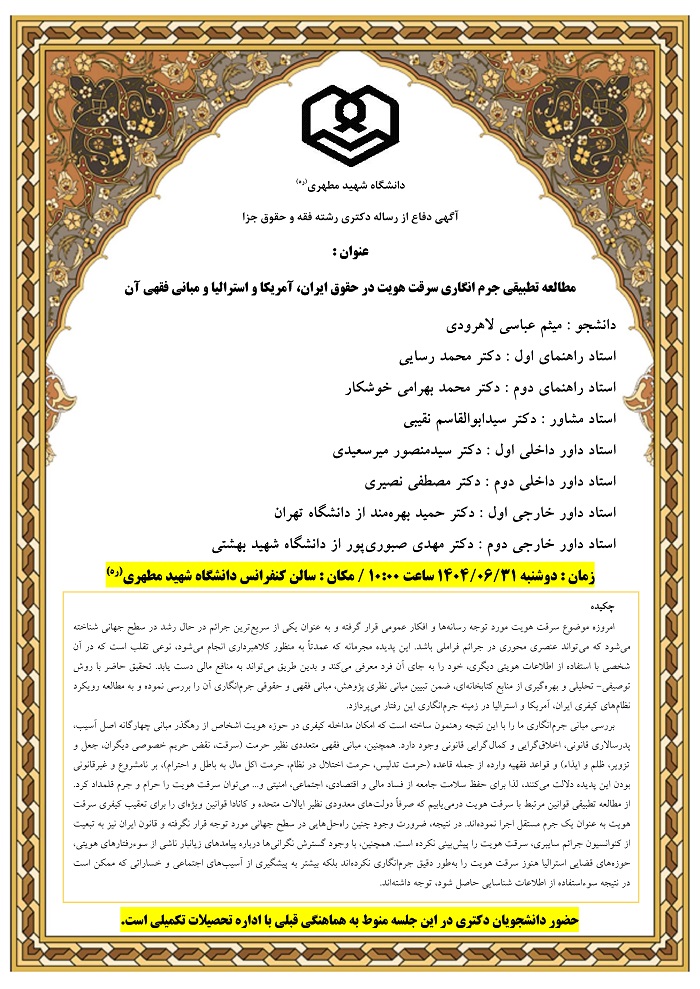 دانشگاه شهید مطهری(ره)
آگهی دفاع از رساله دکتری رشته فقه و حقوق جزا
عنوان :
مطالعه تطبیقی جرم انگاری سرقت هویت در حقوق ایران، آمریکا و استرالیا و مبانی فقهی آن
دانشجو : میثم عباسی لاهرودی
استاد راهنمای اول : دکتر محمد رسایی
استاد راهنمای دوم : دکتر محمد بهرامی خوشکار
استاد مشاور : دکتر سیدابوالقاسم نقیبی
استاد داور داخلی اول : دکتر سیدمنصور میرسعیدی
استاد داور داخلی دوم : دکتر مصطفی نصیری
استاد داور خارجی اول : دکتر حمید بهره‌مند از دانشگاه تهران
استاد داور خارجی دوم : دکتر مهدی صبوری‌پور از دانشگاه شهید بهشتی
زمان : دوشنبه ۱۴۰۴/۰۶/۳۱ ساعت ۱۰:۰۰ / مکان : سالن کنفرانس دانشگاه شهید مطهری(ره)
چکیده
امروزه موضوع سرقت هویت مورد توجه رسانه‌ها و افکار عمومی قرار گرفته و به عنوان یکی از سریع‌ترین جرائم در حال رشد در سطح جهانی شناخته
می‌شود که می‌تواند عنصری محوری در جرائم فراملی باشد. این پدیده مجرمانه که عمدتاً به منظور کلاهبرداری انجام می‌شود، نوعی تقلب است که در آن
شخصی با استفاده از اطلاعات هویتی دیگری، خود را به جای آن فرد معرفی می‌کند و بدین طریق می‌تواند به منافع مالی دست یابد. تحقیق حاضر با روش
توصیفی- تحلیلی و بهره‌گیری از منابع کتابخانه‌ای، ضمن تبیین مبانی نظری پژوهش، مبانی فقهی و حقوقی جرم‌انگاری آن را بررسی نموده و به مطالعه رویکرد
نظام‌های کیفری ایران، آمریکا و استرالیا در زمینه جرم‌انگاری این رفتار می‌پردازد.
بررسی مبانی جرم‌انگاری ما را با این نتیجه رهنمون ساخته است که امکان مداخله کیفری در حوزه هویت اشخاص از رهگذر مبانی چهارگانه اصل آسیب،
پدرسالاری قانونی، اخلاق‌گرایی و کمال‌گرایی قانونی وجود دارد. همچنین، مبانی فقهی متعددی نظیر حرمت (سرقت، نقض حریم خصوصی دیگران، جعل و
تزویر، ظلم و ایذاء) و قواعد فقهیه وارده از جمله قاعده (حرمت تدلیس، حرمت اختلال در نظام، حرمت اکل مال به باطل و احترام)، بر نامشروع و غیرقانونی
بودن این پدیده دلالت می‌کنند، لذا برای حفظ سلامت جامعه از فساد مالی و اقتصادی، اجتماعی، امنیتی و... می‌توان سرقت هویت را حرام و جرم قلمداد کرد.
از مطالعه تطبیقی قوانین مرتبط با سرقت هویت درمی‌یابیم که صرفاً دولت‌های معدودی نظیر ایالات متحده و کانادا قوانین ویژه‌ای را برای تعقیب کیفری سرقت
هویت به عنوان یک جرم مستقل اجرا نموده‌اند. در نتیجه، ضرورت وجود چنین راه‌حل‌هایی در سطح جهانی مورد توجه قرار نگرفته و قانون ایران نیز به تبعیت
از کنوانسیون جرائم سایبری، سرقت هویت را پیش‌بینی نکرده است. همچنین، با وجود گسترش نگرانی‌ها درباره پیامدهای زیانبار ناشی از سوءرفتارهای هویتی،
حوزه‌های قضایی استرالیا هنوز سرقت هویت را به‌طور دقیق جرم‌انگاری نکرده‌اند بلکه بیشتر به پیشگیری از آسیب‌های اجتماعی و خساراتی که ممکن است
در نتیجه سوءاستفاده از اطلاعات شناسایی حاصل شود، توجه داشته‌اند.
حضور دانشجویان دکتری در این جلسه منوط به هماهنگی قبلی با اداره تحصیلات تکمیلی است.